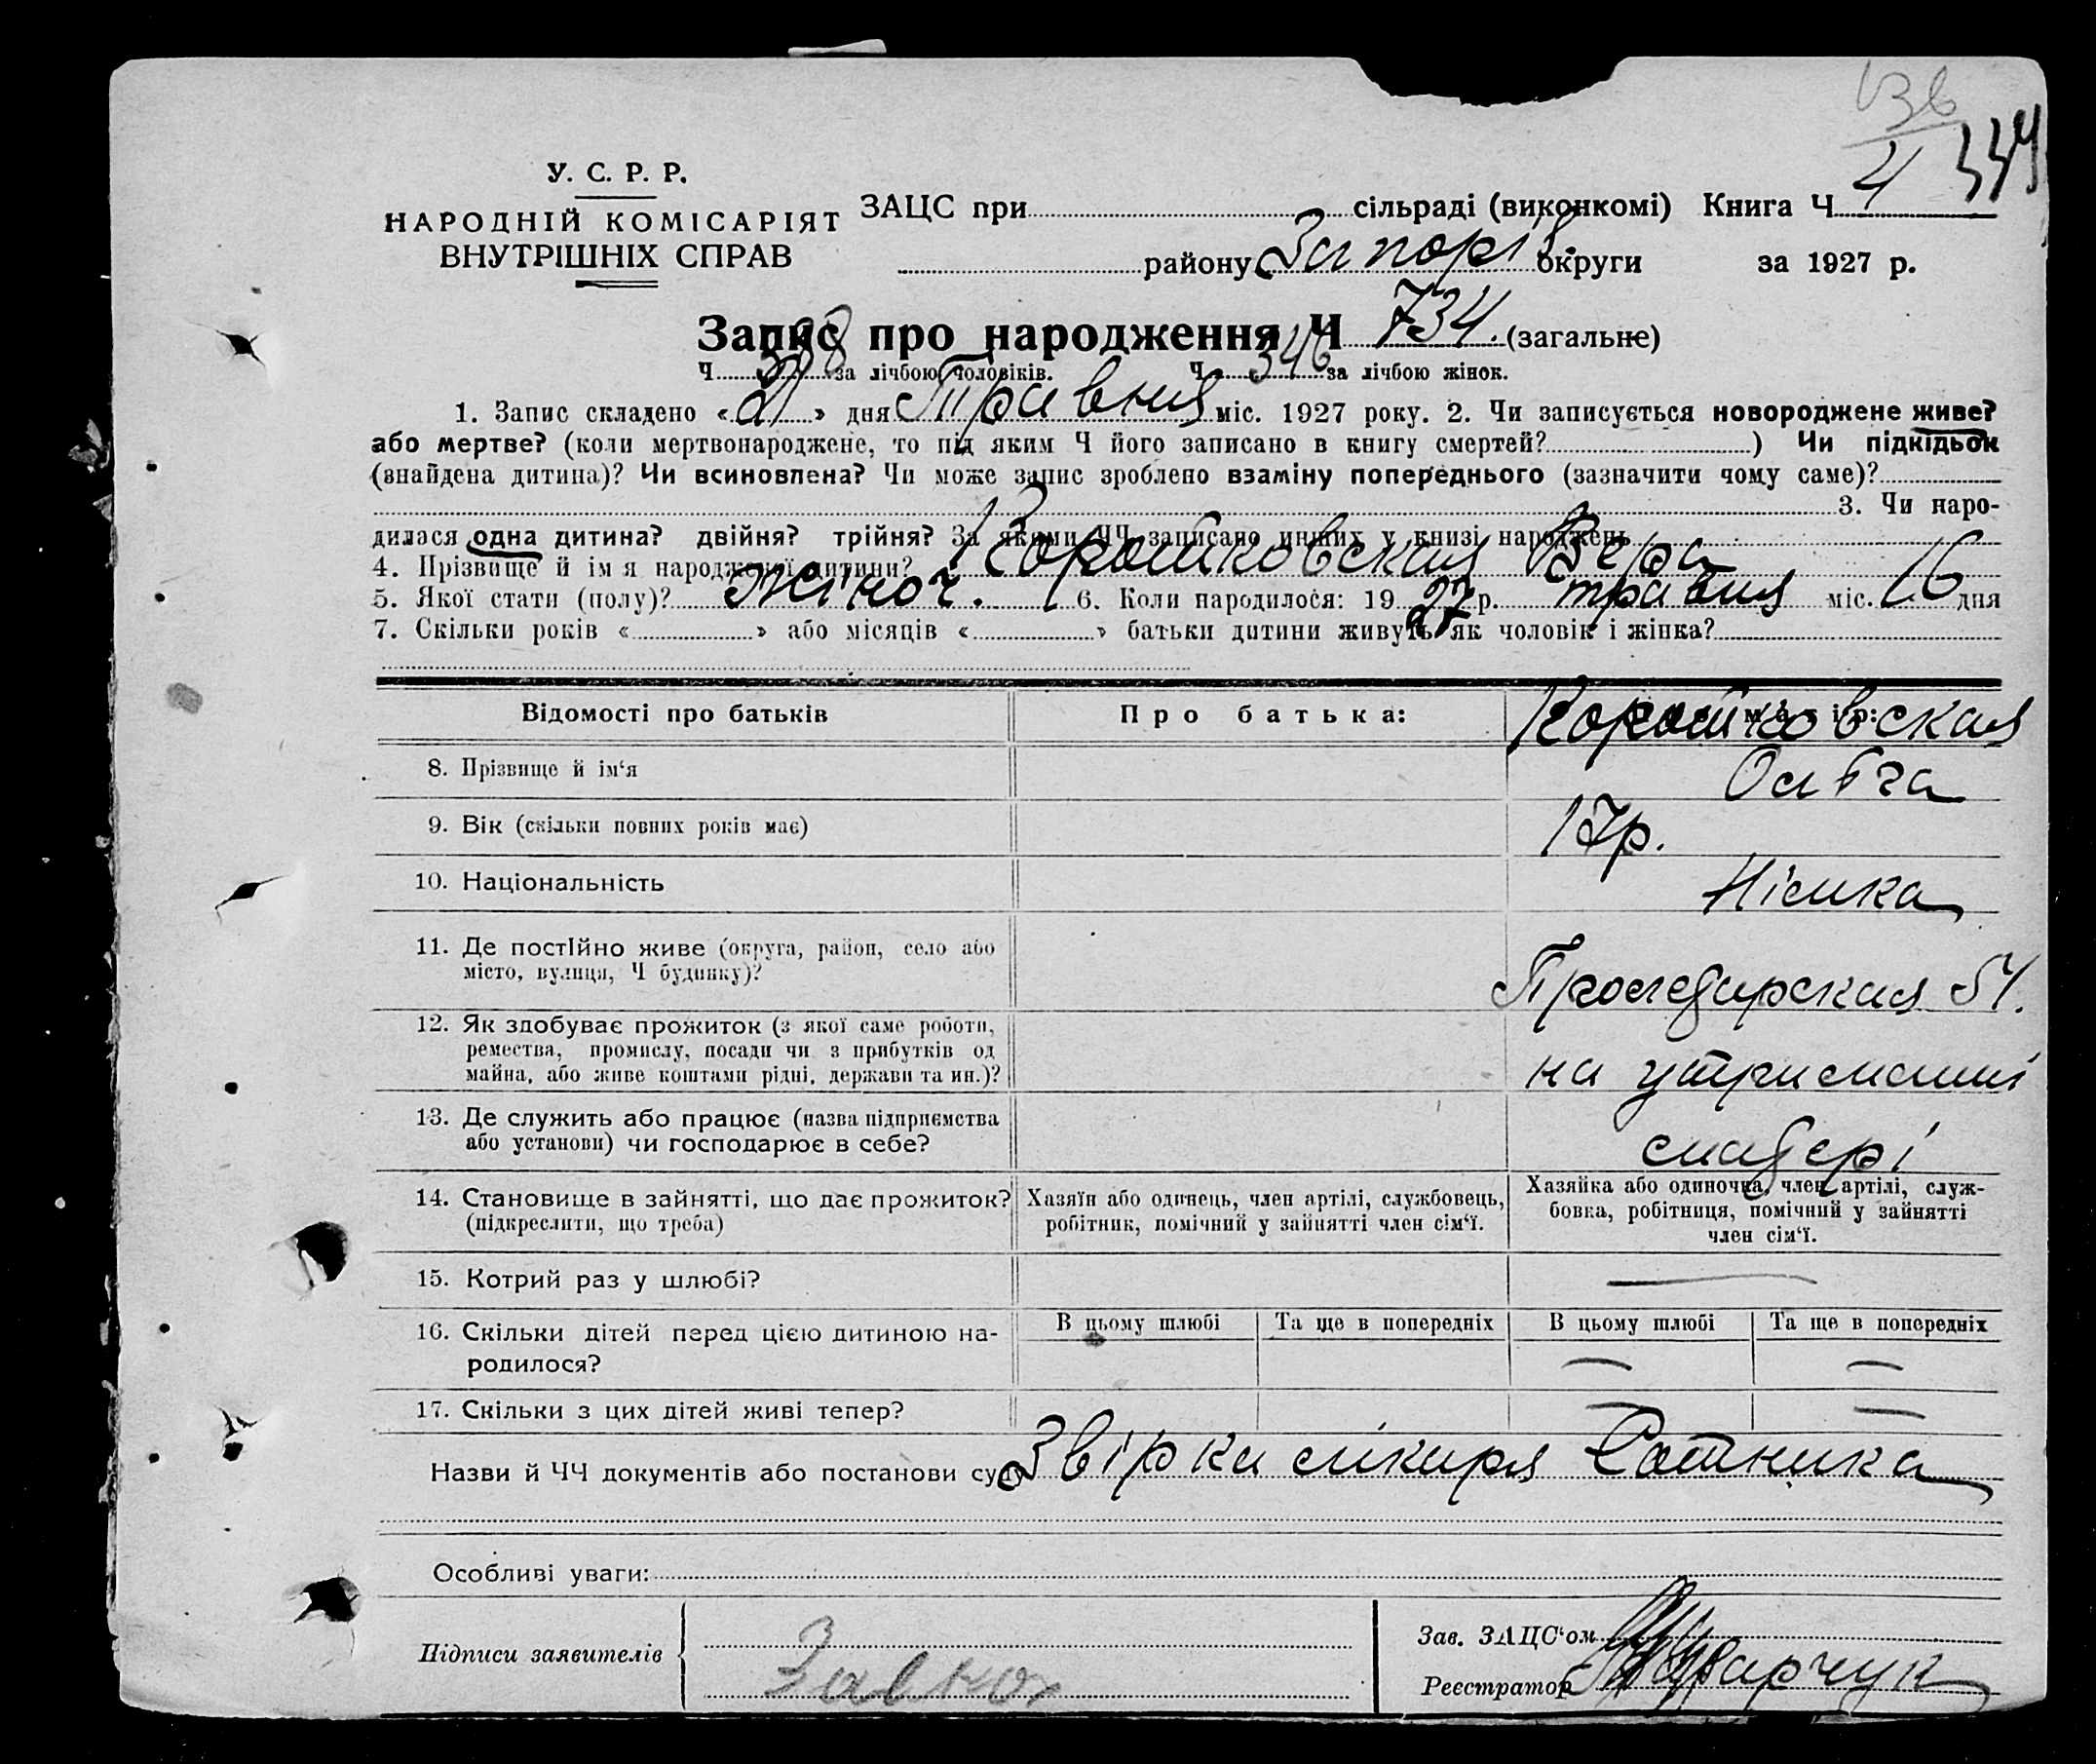 136
4 334
У. С. Р. Р.
НАРОДНІЙ КОМІСАРІЯТ
ВНУТРІШНІХ СПРАВ
ЗАЦС при сільраді (виконкомі) Книга Ч
району Запоріз. округи за 1927 р.
Запис про народження Ч 734. (загальне)
Ч 388 за лічбою чоловіків. Ч 346 за лічбою жінок.
1. Запис складено «21» дня Травня міс. 1927 року. 2. Чи записується новороджене живе?
або мертве? (коли мертвонароджене, то під яким Ч його записано в книгу смертей? ) Чи підкідьок
(знайдена дитина)? Чи всиновлена? Чи може запис зроблено взаміну попереднього (зазначити чому саме)?
3. Чи наро-
дилася одна дитина? двійня? трійня? За якими ЧЧ записано инших у книзі народжень
4. Прізвище й ім я народженої дитини? Корошковская Вера
5. Якої стати (полу)? жіноч. 6. Коли народилося: 19 27 р. травня міс. 16 дня
7. Скільки років « » або місяців « » батьки дитини живуть як чоловік і жінка?
Відомості про батьків Про батька: Про матір:
8. Прізвище й ім‘я Корошковская
Ольга
9. Вік (скільки повних років має) 17р.
10. Національність Німка
11. Де постійно живе (округа, район, село або
місто, вулиця, Ч будинку)? 
12. Як здобуває прожиток (з якої саме роботи,
ремества, промислу, посади чи з прибутків од
майна, або живе коштами рідні, держави та ин.)? на утриманні
13. Де служить або працює (назва підприємства
або установи) чи господарює в себе? матері
14. Становище в зайнятті, що дає прожиток?
(підкреслити, що треба)
Хазяїн або одинець, член артілі, службовець,
робітник, помічний у зайнятті член сім‘ї.
Хазяйка або одиночка, член артілі, служ-
бовка, робітниця, помічний у зайнятті
член сім‘ї.
15. Котрий раз у шлюбі? —
16. Скільки дітей перед цією дитиною на-
родилося?
В цьому шлюбі Та ще в попередніх В цьому шлюбі Та ще в попередніх
— —
17. Скільки з цих дітей живі тепер? — —
Назви й ЧЧ документів або постанови суду Звірка лікаря Сотника
Особливі уваги:
Підписи заявителів
Зав. ЗАЦС‘ом
Реєстратор